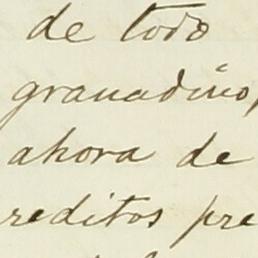 de todo
granadino,
ahora de
reditos pre